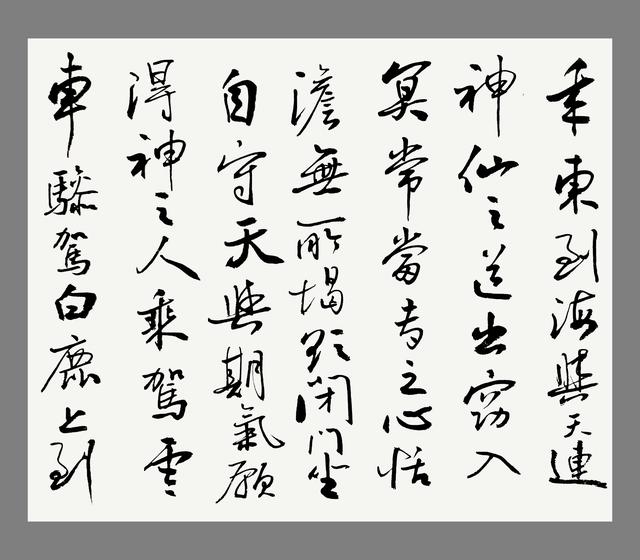 年東到海與天連
神仙之道出窈入
冥常當專之心恬
澹無所愒欲閉門坐
自守天與期氣願
得神之人乘駕雲
車驂駕白鹿上到